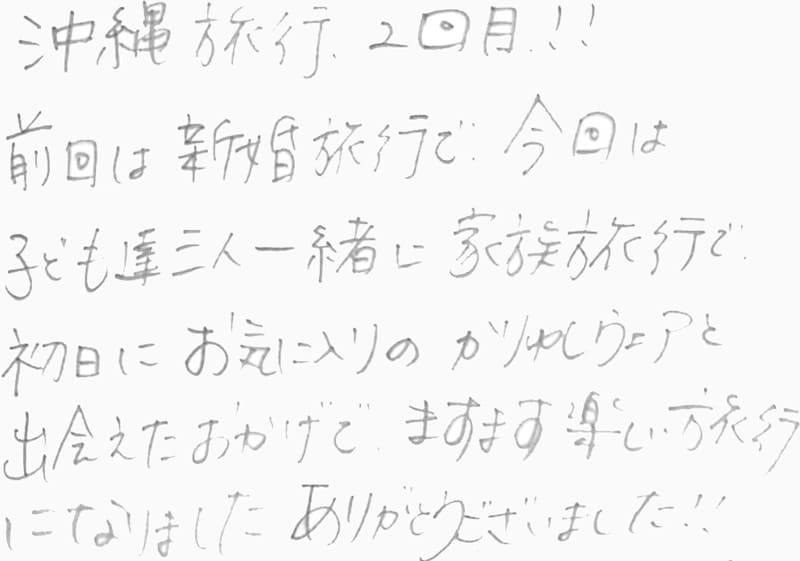 沖縄旅行、2回目!!
前回は新婚旅行で、今回は
子ども達三人一緒に家族旅行で、
初日にお気に入りのかりゆしウェアと
出会えたおかげで、ますます楽しい旅行
になりました ありがとうございました!!